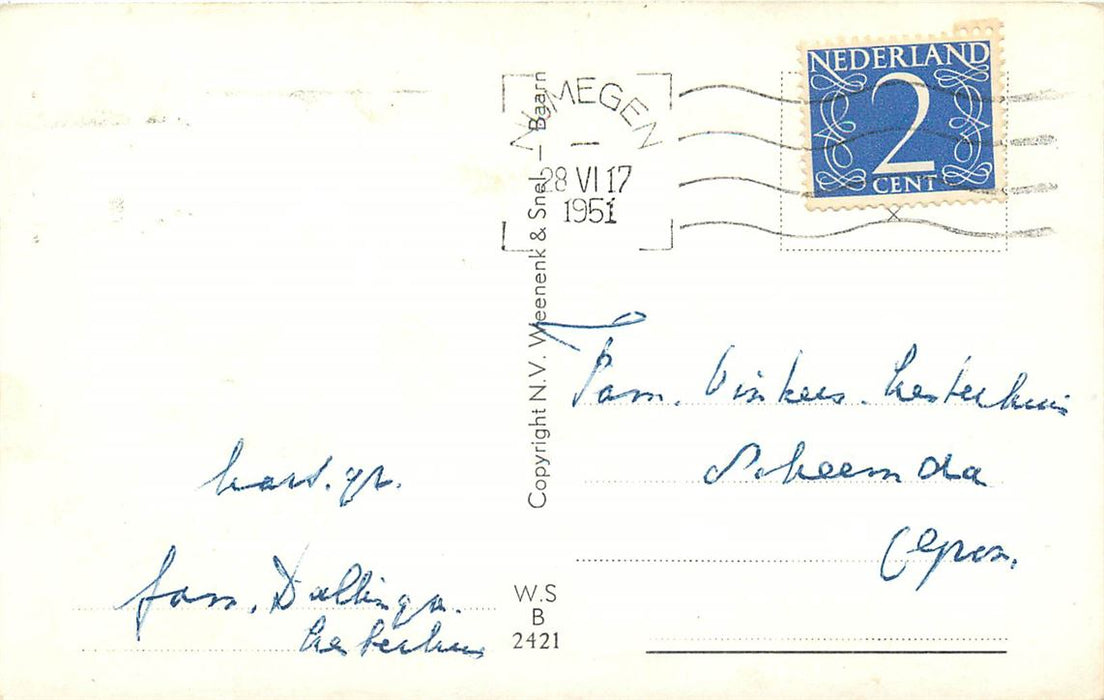 NEDERLAND
2
CENT
NIJMEGEN
28 VI 17
1951
Copyright N.V. Weenenk & Snel — Baarn
Fam. Vinkers. Kesterhuis
Scheemda
(Gron.
hart. gr.
fam. Dallinga.
W.S
B
2421